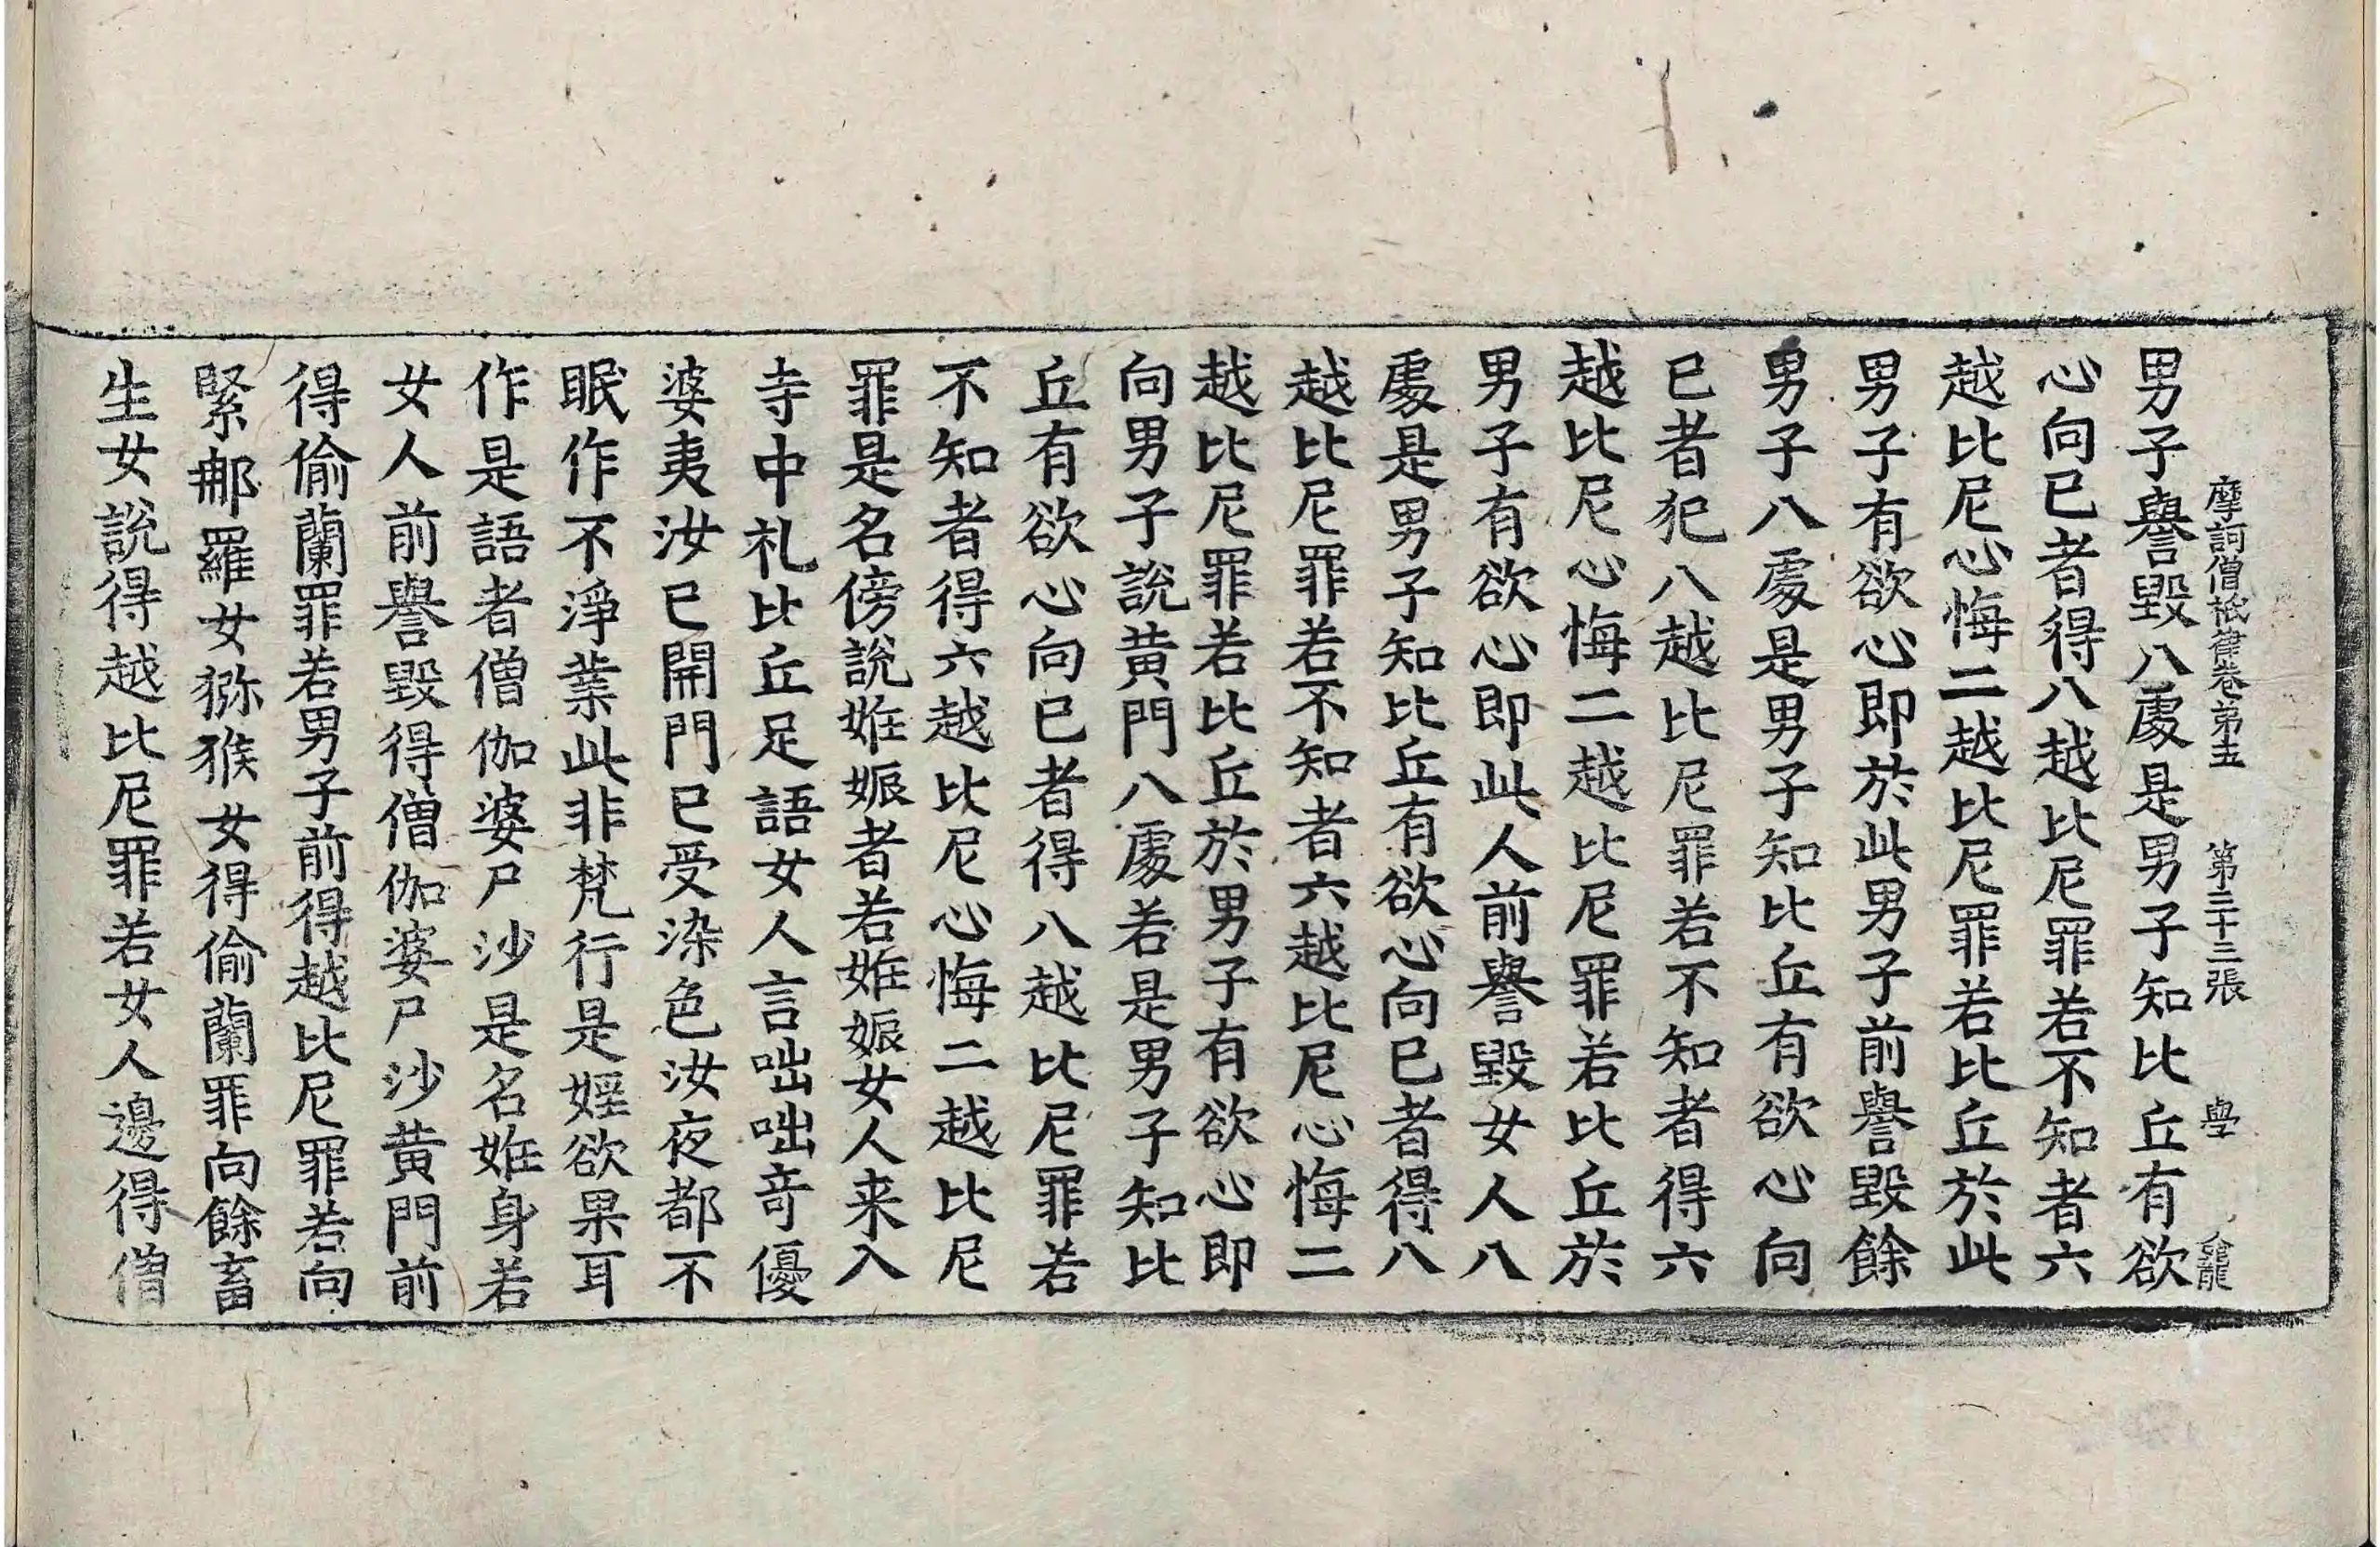 摩訶僧祇律卷第五 第二十三張 學
男子譽毀八處是男子知比丘有欲
心向已者得八越比尼罪若不知者六
越比尼心悔二越比尼罪若比丘於此
男子有欲心即於此男子前譽毀餘
男子八處是男子知比丘有欲心向
已者犯八越比尼罪若不知者得六
越比尼心悔二越比尼罪若比丘於
男子有欲心即此人前譽毀女人八
處是男子知比丘有欲心向已者得八
越比尼罪若不知者六越比尼心悔二
越比尼罪若比丘於男子有欲心即
向男子說黃門八處若是男子知比
丘有欲心向已者得八越比尼罪若
不知者得六越比尼心悔二越比尼
罪是名傍說姙娠者若姙娠女人来入
寺中礼比丘足語女人言咄咄奇優
婆夷汝已開門已受染色汝夜都不
眠作不淨業此非梵行是婬欲果耳
作是語者僧伽婆尸沙是名姙身若
女人前譽毀得僧伽婆尸沙黃門前
得偷蘭罪若男子前得越比尼罪若向
緊那羅女猕猴女得偷蘭罪向餘畜
生女說得越比尼罪若女人邊得僧